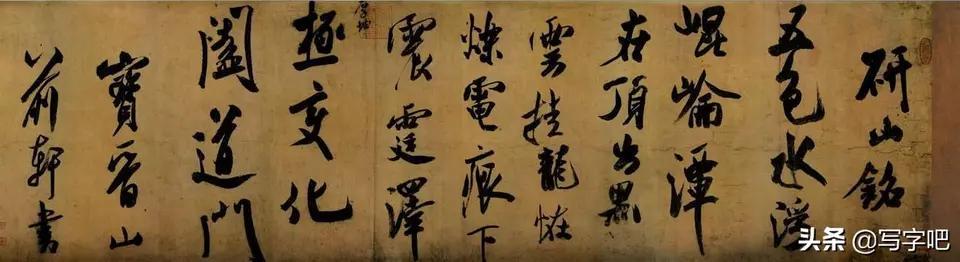 研山銘
五色水浮
崐崘潭
在頂出黑
雲挂龍恠
爍電痕下
震霆澤
極變化
闔道門
寶晉山
前軒書
头条 @写字吧